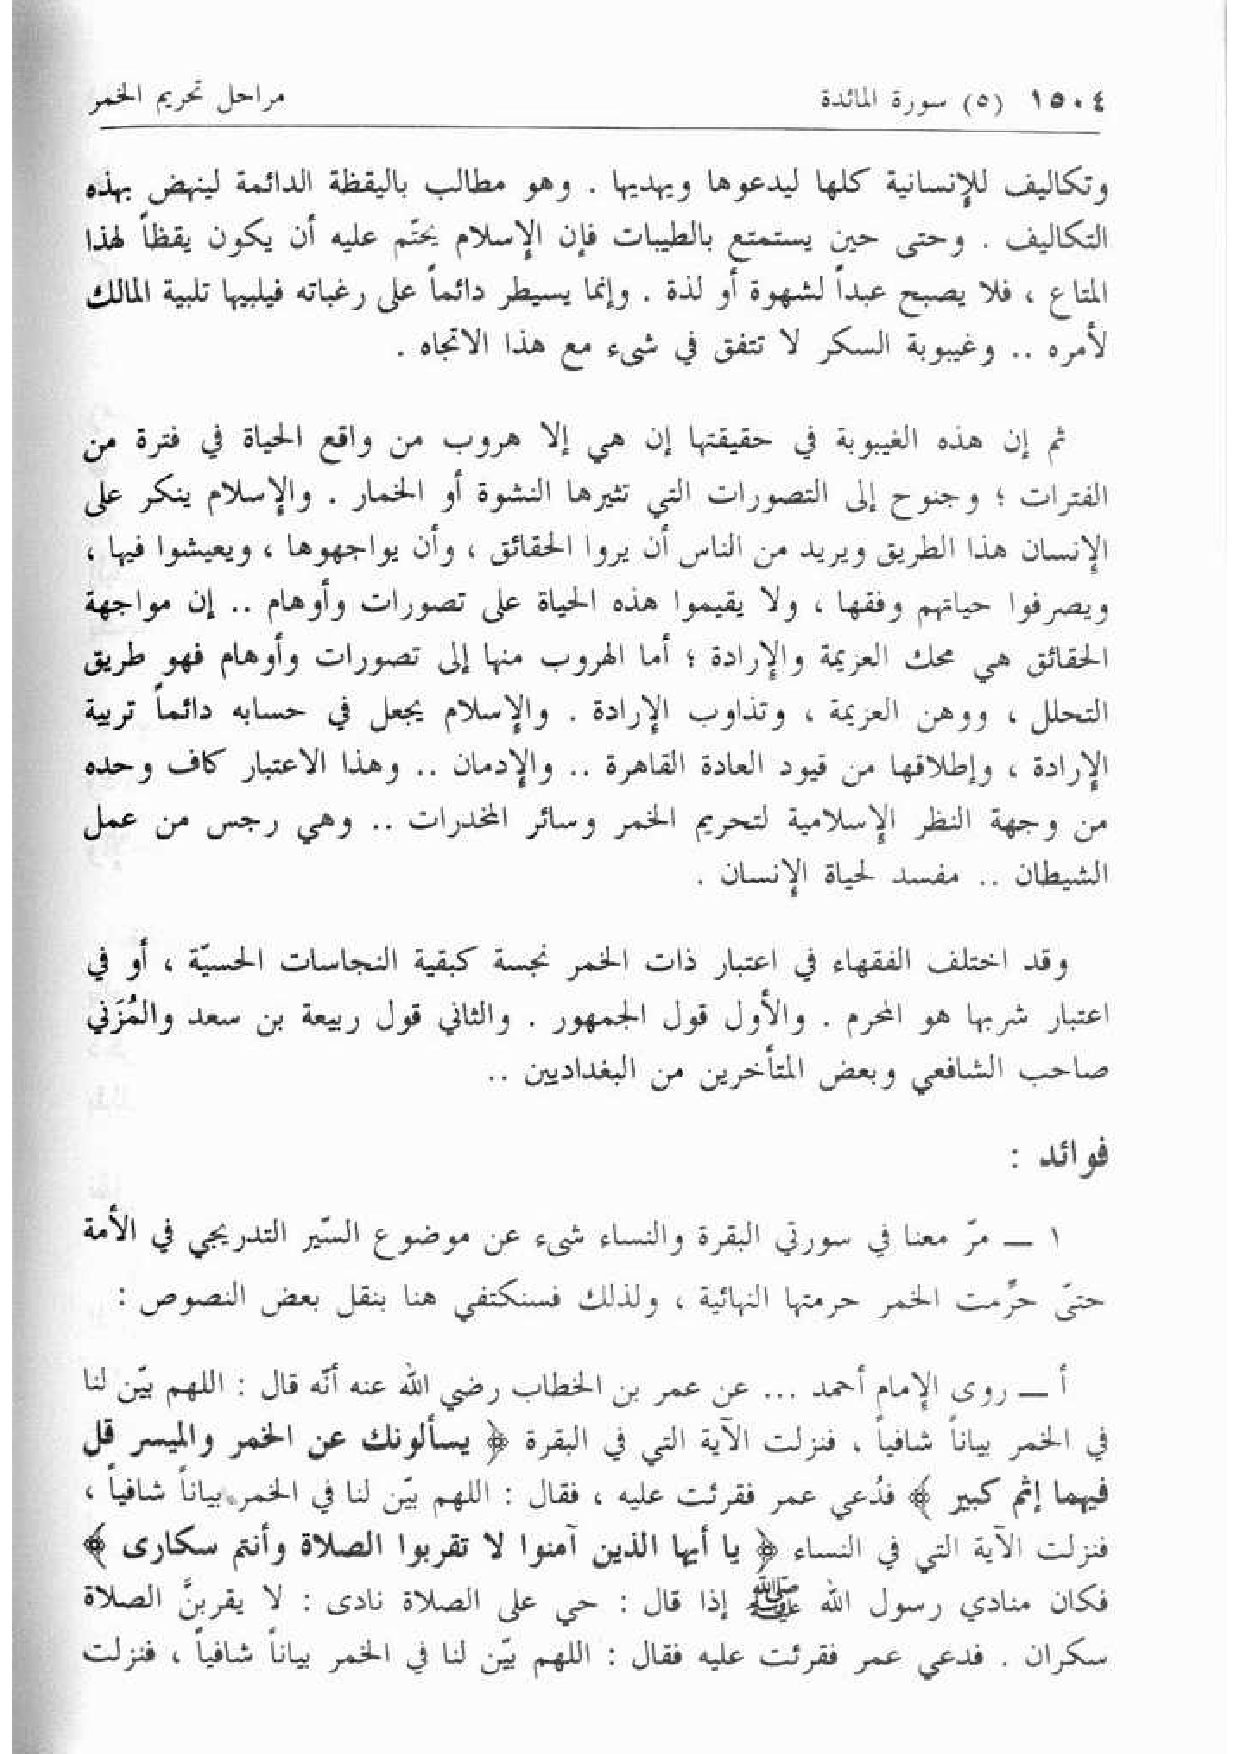 ١٥٠٤ (٥) سورة المائدة مراحل تحريم الخمر
وتكاليف للإنسانية كلها ليدعوها ويهديها . وهو مطالب باليقظة الدائمة لينهض بهذه
التكاليف . وحتى حين يستمتع بالطيبات فإن الإسلام يحتّم عليه أن يكون يقظاً لهذا
المتاع ، فلا يصبح عبداً لشهوة أو لذة . وإنما يسيطر دائماً على رغباته فيلبيها تلبية المالك
لأمره .. وغيبوبة السكر لا تتفق في شىء مع هذا الاتجاه .
ثم إن هذه الغيبوبة في حقيقتها إن هي إلا هروب من واقع الحياة في فترة من
الفترات ؛ وجنوح إلى التصورات التي تثيرها النشوة أو الخمار . والإسلام ينكر على
الإنسان هذا الطريق ويريد من الناس أن يروا الحقائق ، وأن يواجهوها ، ويعيشوا فيها ،
ويصرفوا حياتهم وفقها ، ولا يقيموا هذه الحياة على تصورات وأوهام .. إن مواجهة
الحقائق هي محك العزيمة والإرادة ؛ أما الهروب منها إلى تصورات وأوهام فهو طريق
التحلل ، ووهن العزيمة ، وتذاوب الإرادة . والإسلام يجعل في حسابه دائماً تربية
الإرادة ، وإطلاقها من قيود العادة القاهرة .. والإدمان .. وهذا الاعتبار كاف وحده
من وجهة النظر الإسلامية لتحريم الخمر وسائر المخدرات .. وهي رجس من عمل
الشيطان .. مفسد لحياة الإنسان .
وقد اختلف الفقهاء في اعتبار ذات الخمر نجسة كبقية النجاسات الحسيّة ، أو في
اعتبار شربها هو المحرم . والأول قول الجمهور . والثاني قول ربيعة بن سعد والمُزَني
صاحب الشافعي وبعض المتأخرين من البغداديين ..
فوائد :
١ ـ مرّ معنا في سورتي البقرة والنساء شىء عن موضوع السّير التدريجي في الأمة
حتىّ حرِّمت الخمر حرمتها النهائية ، ولذلك فسنكتفي هنا بنقل بعض النصوص :
أ ـ روى الإمام أحمد ... عن عمر بن الخطاب رضي الله عنه أنّه قال : اللهم بيّن لنا
في الخمر بياناً شافياً ، فنزلت الآية التي في البقرة ﴿ يسألونك عن الخمر والميسر قل
فيهما إثم كبير ﴾ فدُعي عمر فقرئت عليه ، فقال : اللهم بيّن لنا في الخمر بياناً شافياً ،
فنزلت الآية التي في النساء ﴿ يا أيها الذين آمنوا لا تقربوا الصلاة وأنتم سكارى ﴾
فكان منادي رسول الله ﷺ إذا قال : حي على الصلاة نادى : لا يقربنَّ الصلاة
سكران . فدعي عمر فقرئت عليه فقال : اللهم بيّن لنا في الخمر بياناً شافياً ، فنزلت